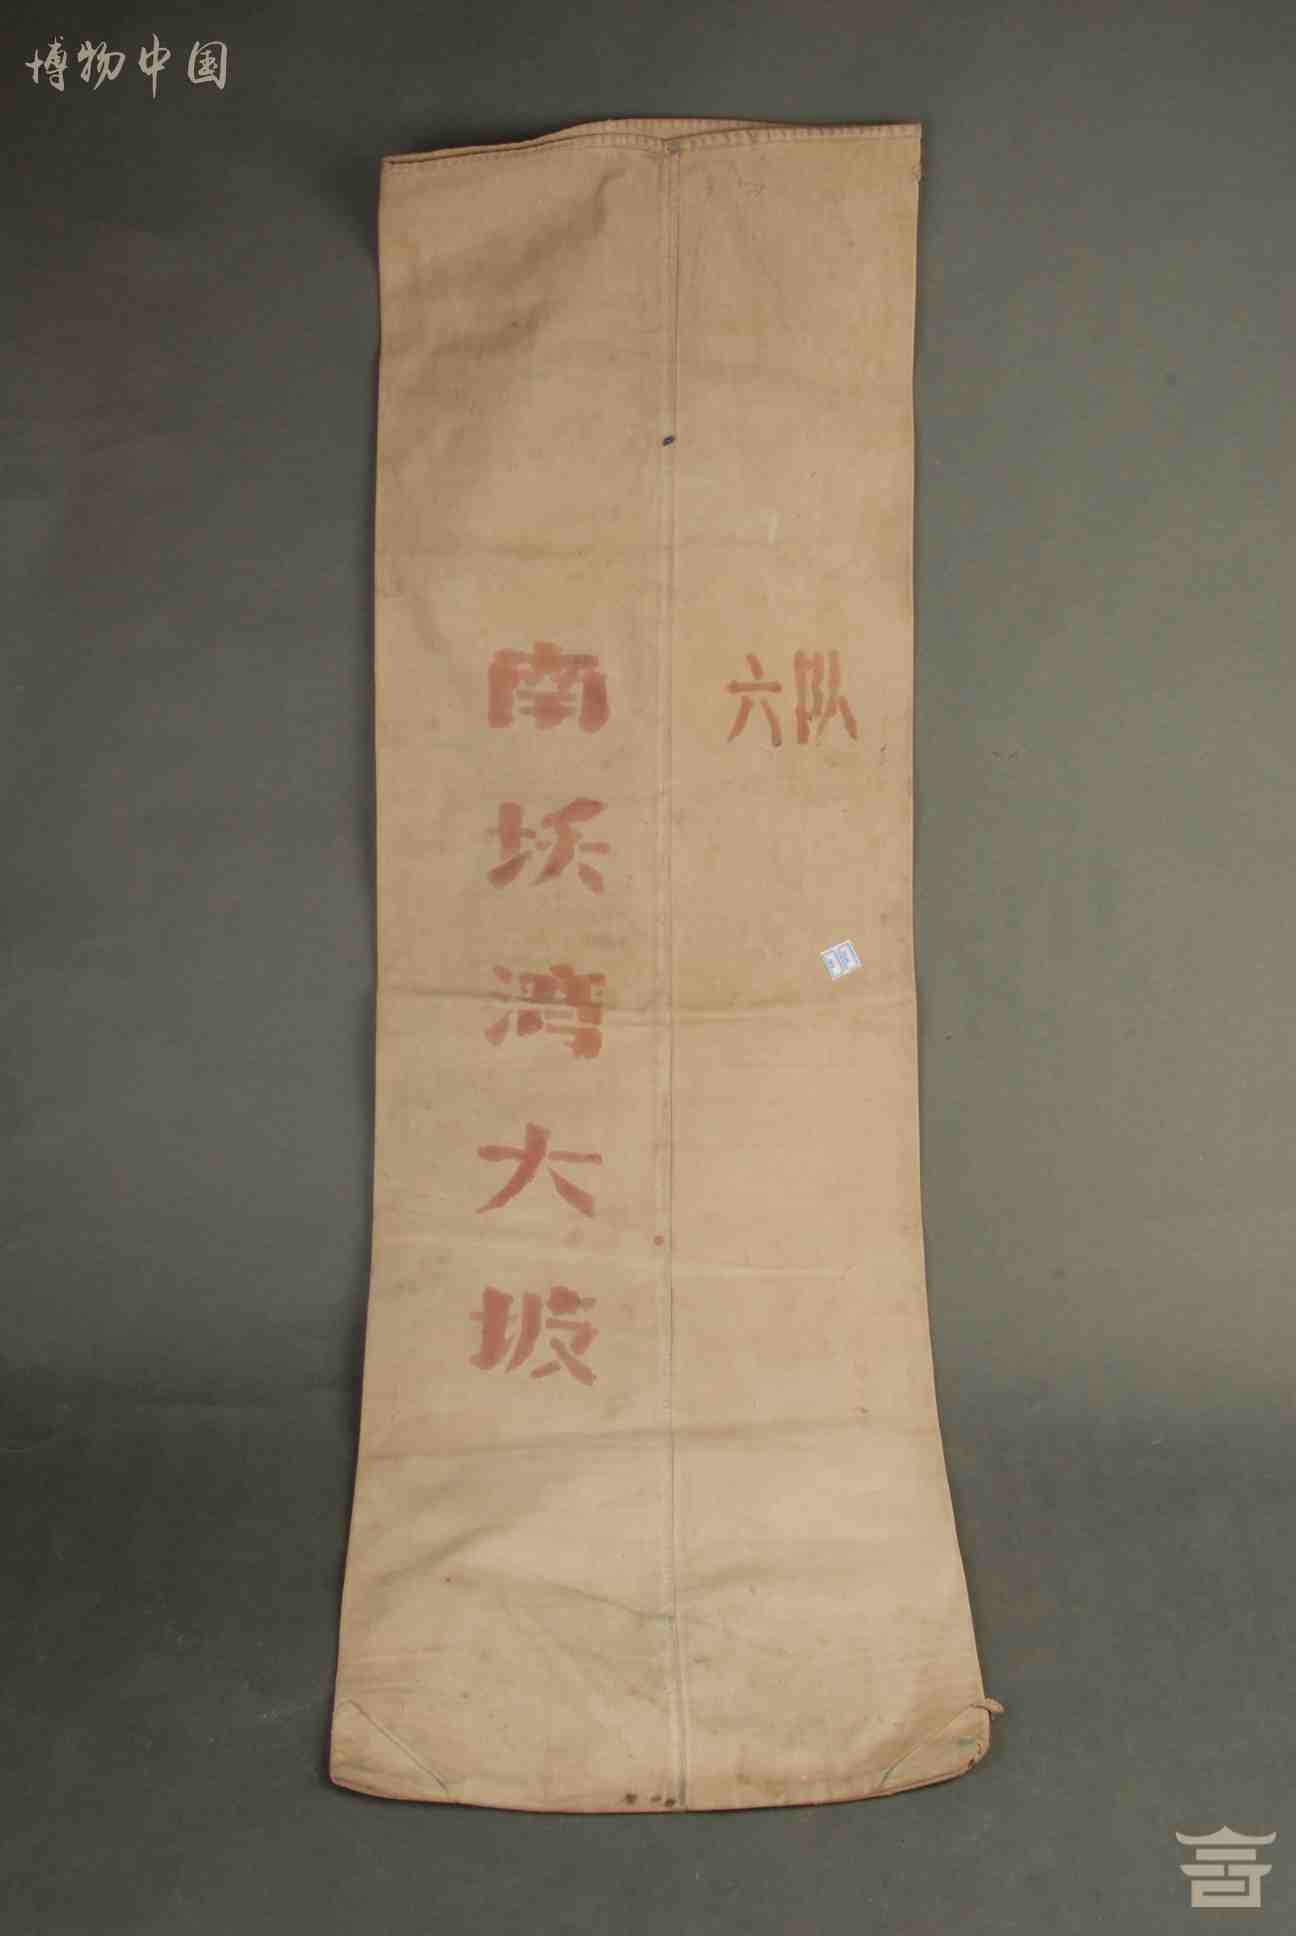 博物中国
六队
南垯湾大坡